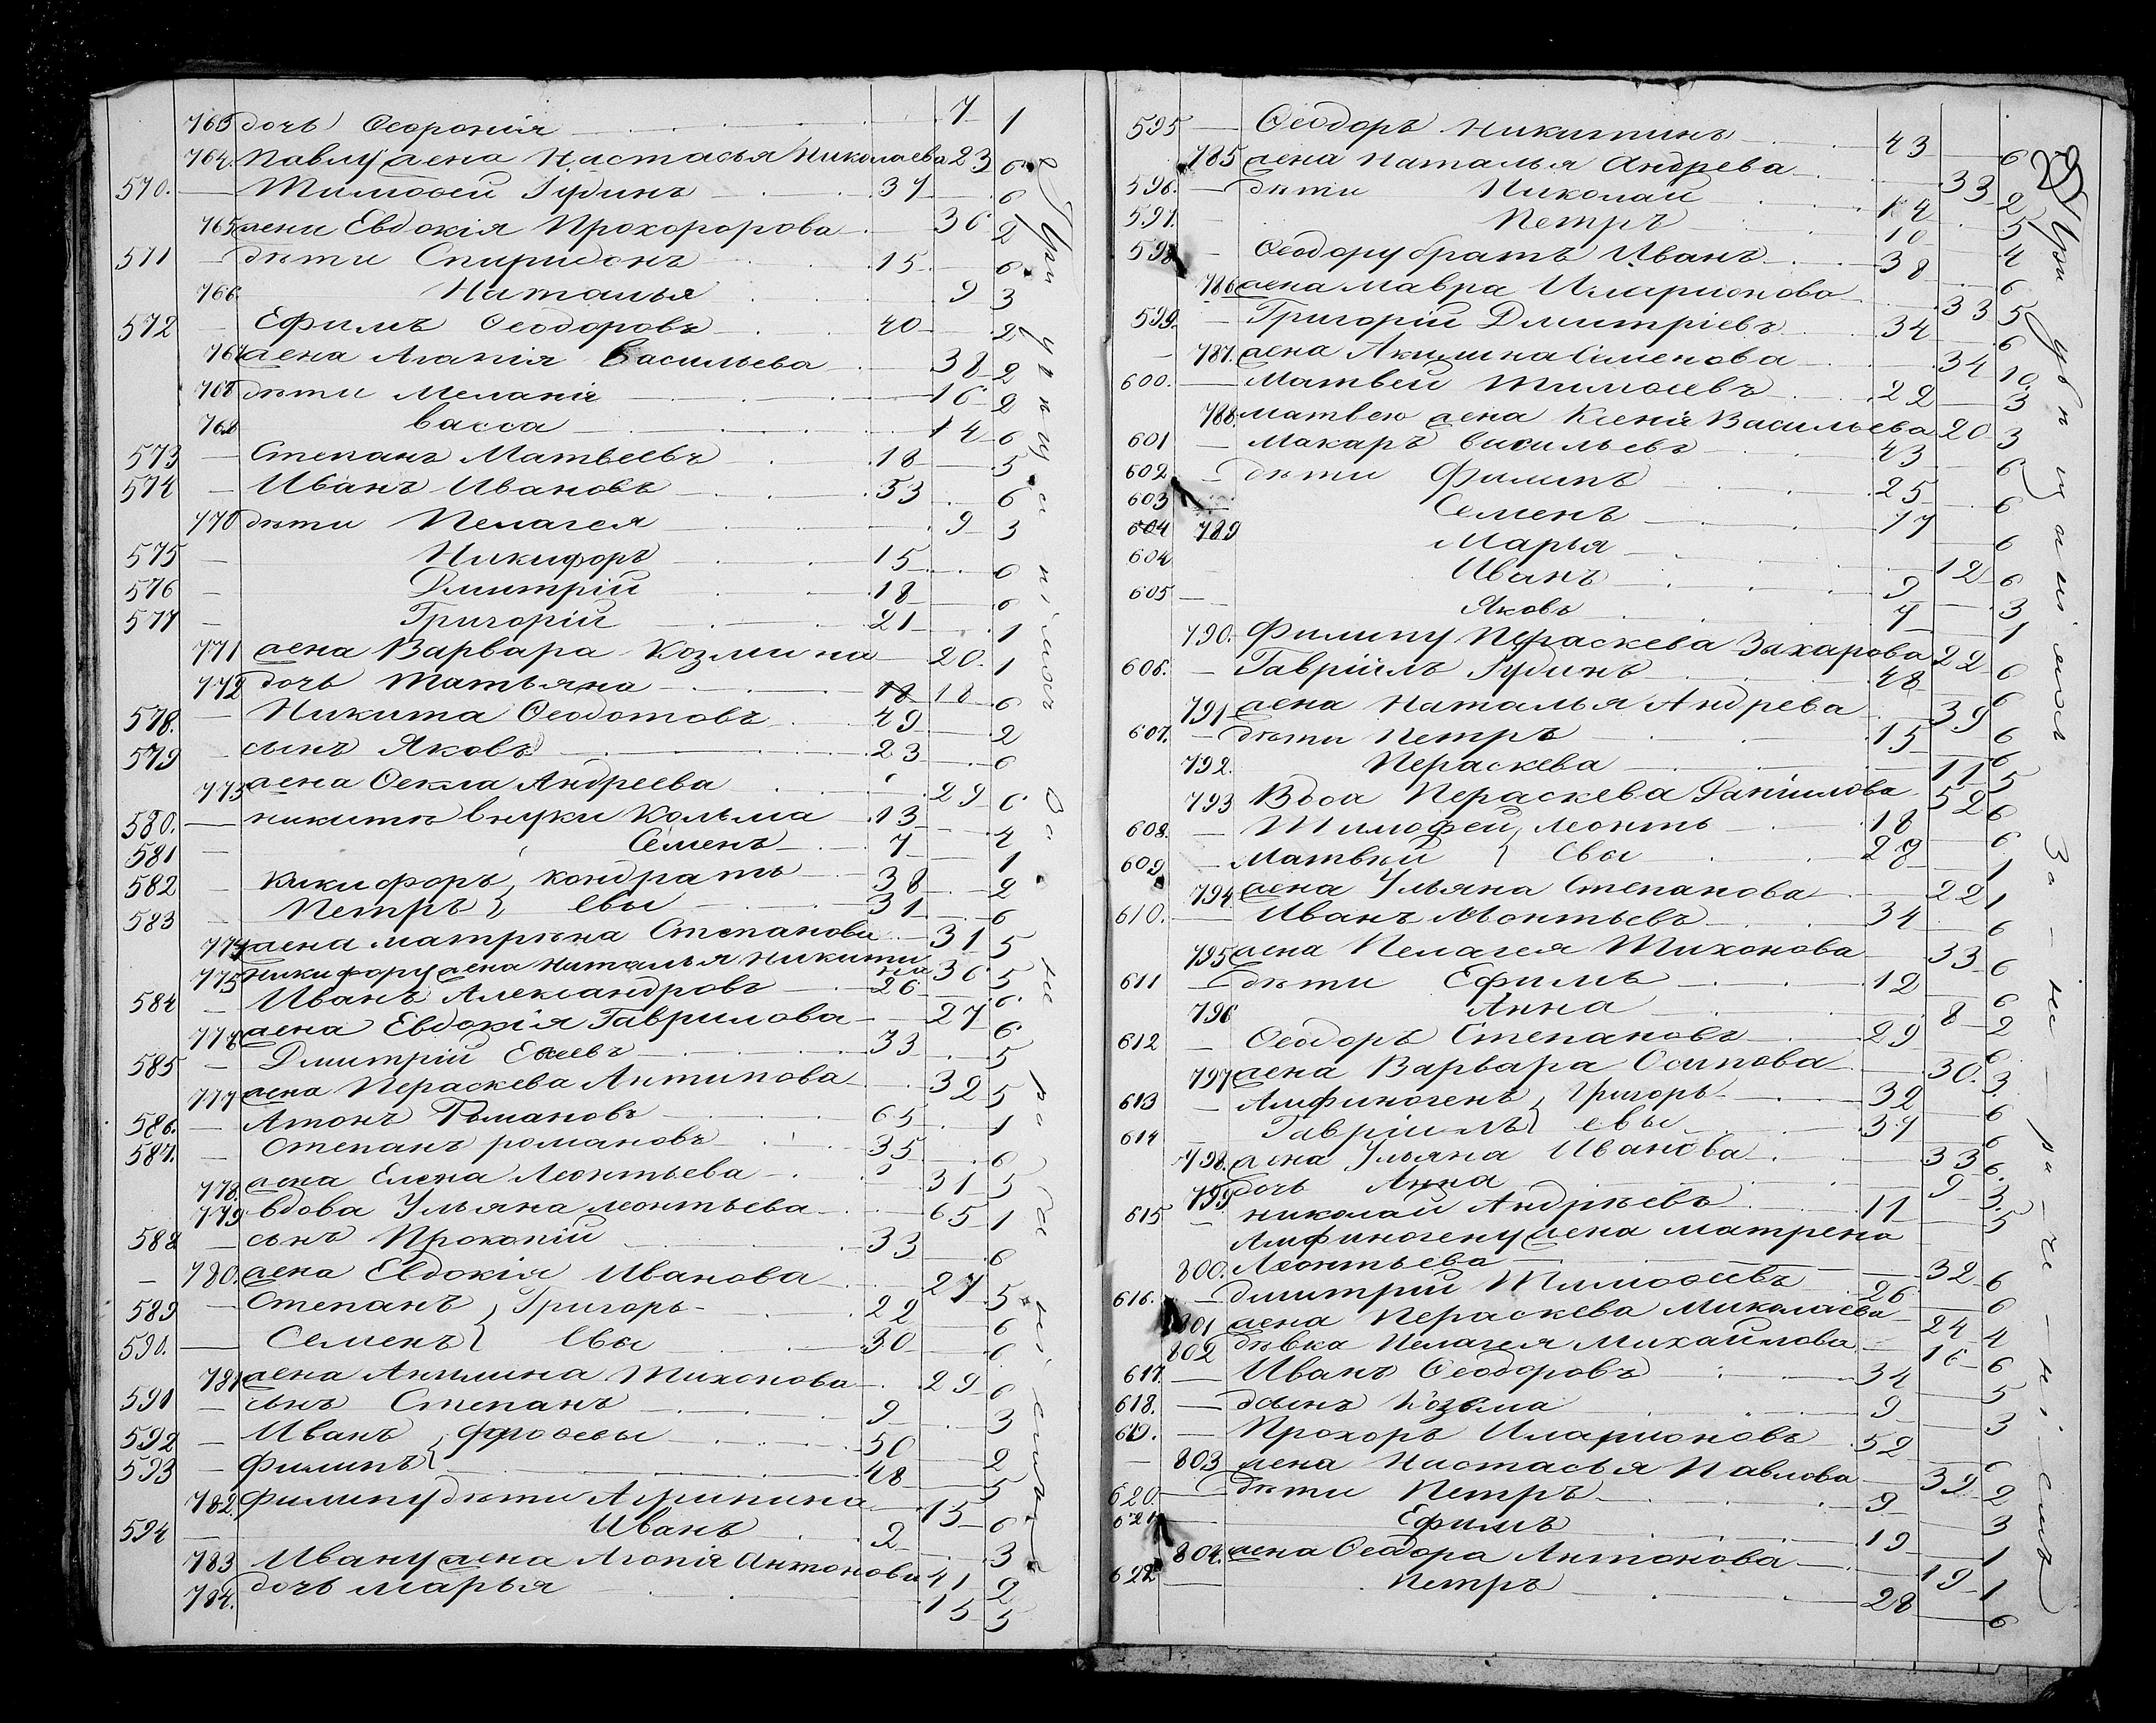 763 дочь Ѳеоронія 7 1
764. Павлу жена Настасья Николаева 23 6
570. Тимоѳей Гудинъ 37 6
765 жена Евдокія Прохоророва 36 2
571 дѣти Спиридонъ 15 6
766 Наталья 9 3
572 Ефимъ Ѳеодоровъ 40 2
767 жена Агапія Васильева 38 2
768 дѣти Меланія 16 2
769 Васса 14 6
573 Степанъ Матвеевъ 18 5
574 Иванъ Ивановъ 53 6
770 дѣти Пелагея 9 3
575 Никифоръ 15 6
576 Дмитрій 18 6
577 Григорій 21 1
771 жена Варвара Козмина 20 1
772 дочь Татьяна 18 18 6
578. Никита Ѳеодотовъ 49 2
579 сынъ Яковъ 23 6
773 жена Ѳекла Андреева 29 6
580. никитѣ внуки Козьма 13 4
581 Семенъ 7 1
582 Никифоръ кондрать 38 2
583 Петръ евы 31 6
774 жена матрѣна Степанова 31 5
775 никифору жена Наталья Никитина 36 5
584 Иванъ Александровъ 26 6
776 жена Евдокія Гаврилова 27 6
585 Дмитрій Евсеевъ 33 5
777 жена Пераскева Антипова 32 5
586. Атонъ Романовъ 65 1
587. Степанъ романовъ 35 6
778. жена Елена Леонтьева 31 5
779 вдова Ульяна леонтьева 65 1
588 сынъ Прокопій 33 6
780. жена Евдокія Иванова 27 5
589 Степанъ Григорь- 22 6
590. Семенъ евы 30 6
781 жена Акилина Тихонова 29 6
591 сынъ Степанъ 9 3
592 Иванъ 50 2
593 Филипъ 48 5
782. Филипу дѣти Агрипина 15 6
594 Иванъ 2 3
783 Ивану жена Агопія Антонова 41 2
784. дочь Марья 15 5
595 Ѳеодоръ Никитинъ 43 6
785 жена Наталья Андрева 33 2
596. дѣти Николай 14 5
597. Петръ 10 4
598 Ѳеодору братъ Иванъ 38 6
786 жена Мавра Иларионова 33 5
599. Григорій Дмитріевъ 34 6
787. жена Акилина Семенова 34 10
600. Матвей Тимоѳевъ 22 3
788. матвею жена Ксенія Васильева 20 3
601 Макаръ Васильевъ 43 6
602 дѣти Филипъ 25 6
603 Семенъ 17 6
604 789 Марья 12 6
604 Иванъ 9 3
605 Яковъ 7 1
790. Филипу Пераскева Захарова 22 6
606. Гавріилъ Гудинъ 48 6
791 жена Наталья Андрева 39 6
607. дѣти Петръ 15 6
792. Пераскева 11 5
793 Вдоа Пераскева Данилова 52 6
608. Тимофей леонть 18 6
609 Матвѣй евы 28 1
794 жена Ульяна Степанова 22 1
610. Иванъ Леонтьевъ 34 6
795 жена Пелагея Тихонова 33 6
611 дѣти Ефимъ 12 6
796 Анна 8 2
612 Ѳеодоръ Степановъ 29 6
797 жена Варвара Осипова 30. 3
613 Анфиногенъ Григорь- 32 6
614 Гавріилъ евы 37 6
798. жена Ульяна Иванова 33 6
799 дочь Анна 9 3
615 николай Андрѣевъ 11 5
Анфиногену жена матрена
800. Леонтьева 32 6
616. дмитрій Тимоѳеевъ 26 6
801 жена Пераскева Миколаева 24 4
802 дѣвка Пелагея Михайлова 16 6
617. Иванъ Ѳеодоровъ 34 5
618. сынъ Козьма 9 3
619. Прохоръ Иларионовъ 52 6
803 жена Настасья Павлова 39 2
620. дѣти Петръ 9 3
621 Ефимъ 19 1
804. жена Ѳеодора Антонова 19 1
622 Петръ 28 6